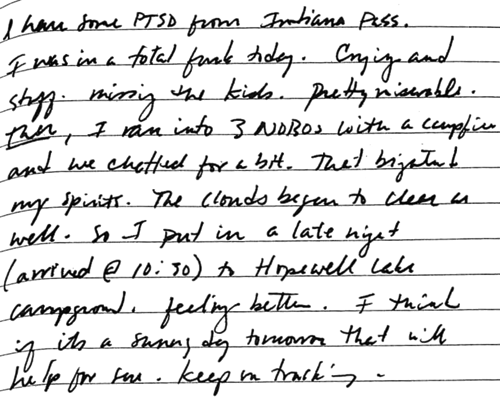 I have some PTSD from Indiana Pass.
I was in a total funk today. Crying and
stuff. missing the kids. pretty miserable.
then, I ran into 3 NOBOs with a campfire
and we chatted for a bit. That brightened
my spirits. The clouds began to clear as
well. So I put in a late night
(arrived @ 10:30) to Hopewell Lake
campground. feeling better. I think
if its a sunny day tomorrow that will
help for sure. Keep on trucking.